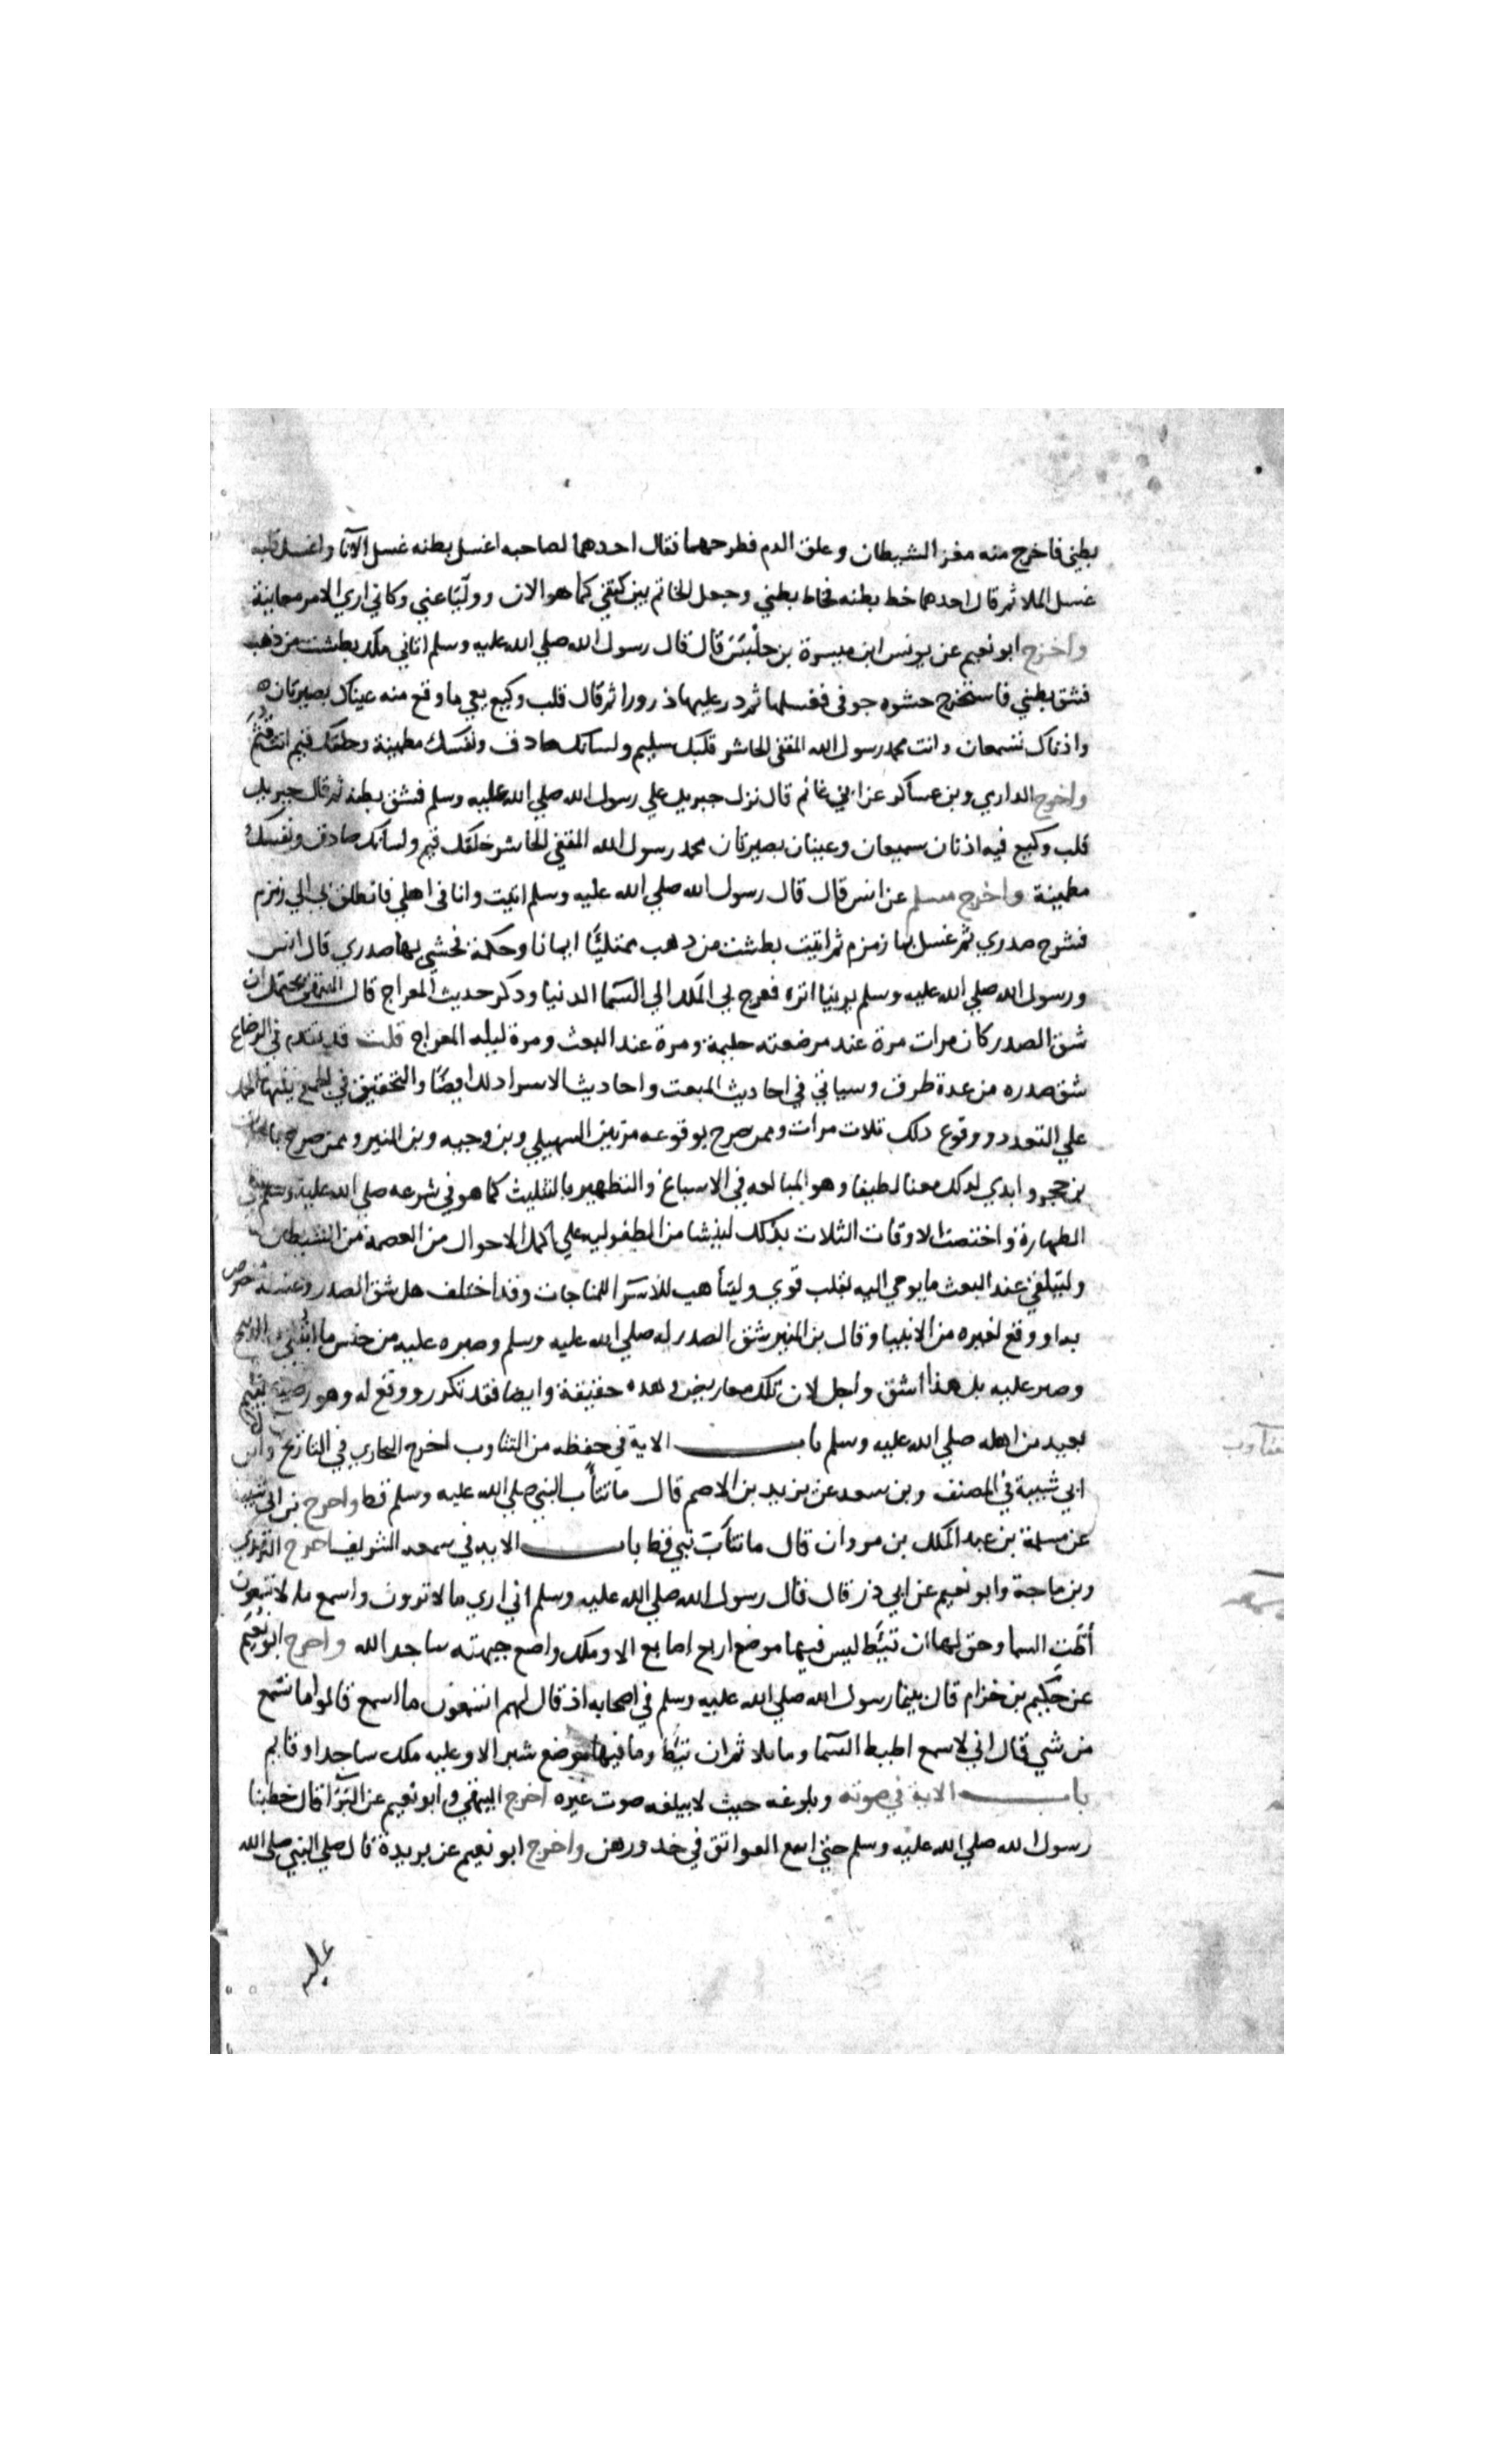 بطني فاخرج منه مغز الشيطان وعلق الدم فطرحهما فقال احدهما لصاحبه اغسل بطنه غسل الانا واغسل قلبه
غسل الملا ثم قال احدهما خط بطنه فخاط بطني وجعل الخاتم بين كتفي كما هو الان وولّيا عني وكاني اري الامر معاينة
واخرج ابو نعيم عن يونس ابن ميسرة بن حلبس قال قال رسول الله صلي الله عليه وسلم اتاني ملك بطشت من ذهب
فشق بطني فاستخرج حشوه جوفي فغسلها ثم در عليها ذرورا ثم قال قلب وكيع يعي ما وقع منه عيناك بصيرتان
واذناك تسمعان وانت محمد رسول الله المقفي الحاشر قلبك سليم ولسانك صادق ونفسك مطمينة وخلقك قيم انت قثم
واخرج الداري وبن عساكر عن ابني غانم قال نزل جبريل علي رسول الله صلي الله عليه وسلم فشق بطنه ثم قال جبريل
قلب وكيع فيه اذنان سميعان وعينان بصيرتان محمد رسول الله المقفي الحاشر خلقك قيم ولسانك صادق ونفسك
مطمينة واخرج مسلم عن انس قال قال رسول الله صلي الله عليه وسلم اتيت وانا في اهلي فانطلق بي الي زمزم
فشرح صدري ثم غسل بما زمزم ثم اتيت بطشت من دهب ممتليًا ايمانا وحكمة فحشي بها صدري قال انس
ورسول الله صلي الله عليه وسلم يرينا اثره فعرج بي الملك الي السما الدنيا ودكر حديث المعراج قال البيهقي يحتمل ان
شق الصدر كان مرات مرة عند مرضعته حليمة ومرة عند البعث ومرة ليله المعراج قلت قد تقدم في الرضاع
شق صدره من عدة طرق وسياتي في احاديث المبعت واحاديث الاسرا دلك ايضًا والتحقيق في الجمع بينها الحمل
علي التعدد ووقوع دلك ثلات مرات وممن صرح بوقوعه مرتين السهيلي وبن وجيه وبن المنير وممن صرح بالثلاث
بن حجر وابدي لدلك معنا لطيفا وهو المبالغه في الاسباغ والتطهير بالتثليث كما هو في شرعه صلي الله عليه وسلم في
الطهارة واختصت الاوقات الثلات بذلك لينشا من الطفوليه علي اكمل الاحوال من العصمة من الشيطان
وليتلقي عند البعث ما يوحي اليه بقلب قوي وليتأهب للاسرا للمناجات وقد اختلف هل شق الصدر وغسله مخصوص
به او وقع لغيره من الانبيا وقال بن المنير شق الصدر له صلي الله عليه وسلم وصبره عليه من جنس ما ابتلي به الذبيح
وصبر عليه بل هذا اشق واجل لان تلك معاريض وهده حقيقة وايضا فقد تكرر ووقع له وهو رضيع يتيم
بعيد من اهله صلي الله عليه وسلم باب الاية في حفظه من التثاوب اخرج البخاري في التاريخ وابن
ابي شيبة في المصنف وبن سعد عن يزيد بن الاصم قال ما تثاب النبي صلي الله عليه وسلم قط واخرج بن ابي شيبه
عن مسلمة بن عبد الملك بن مروان قال ما تثأب نبي قط باب الايه في سمعه الشريف اخرج الترمذي
وبن ماجة وابو نعيم عن ابي ذر قال قال رسول الله صلي الله عليه وسلم اني اري ما لا ترون واسمع ما لا تسمعون
أطّتِ السما وحق لها ان تئط ليس فيها موضع اربع اصابع الا وملك واضع جبهته ساجد الله واخرج ابو نعيم
عن حكيم بن خزام قال بينما رسول الله صلي الله عليه وسلم في اصحابه اذ قال لهم اتسمعون ما اسمع قالوا ما نسمع
من شي قال اني لاسمع اطيط السما وما تلا ثم ان تئط وما فيها موضع شبر الا وعليه ملك ساجد او قايم
باب الاية في صوته وبلوغه حيث لا يبلغه صوت غيره اخرج البيهقي وابو نعيم عن البرّا قال خطبنا
رسول الله صلي الله عليه وسلم حتي اسمع العواتق في خدورهن واخرج ابو نعيم عن بريدة قال صلي النبي صلي الله
عليه